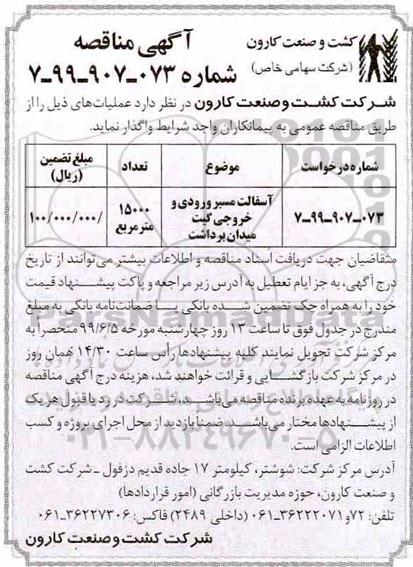 کشت و صنعت کارون
(شرکت سهامی خاص)
آگهی مناقصه
شماره ۰۷۳-۹۰۷-۹۹-۷
شرکت کشت و صنعت کارون در نظر دارد عملیات‌های ذیل را از
طریق مناقصه عمومی به پیمانکاران واجد شرایط واگذار نماید.
شماره درخواست موضوع تعداد مبلغ تضمین (ریال)
۰۷۳-۹۰۷-۹۹-۷ آسفالت مسیر ورودی و خروجی گیت میدان برداشت ۱۵۰۰۰ متر مربع ۱۰۰/۰۰۰/۰۰۰/
متقاضیان جهت دریافت اسناد مناقصه و اطلاعات بیشتر می‌توانند از تاریخ
درج آگهی، به جز ایام تعطیل به آدرس زیر مراجعه و پاکت پیشنهاد قیمت
خود را به همراه چک تضمین شده بانکی یا ضمانت‌نامه بانکی به مبلغ
مندرج در جدول فوق تا ساعت ۱۳ روز چهارشنبه مورخه ۹۹/۶/۵ منحصراً به
مرکز شرکت تحویل نمایند کلیه پیشنهادها راس ساعت ۱۴/۳۰ همان روز
در مرکز شرکت بازگشایی و قرائت خواهند شد، هزینه درج آگهی مناقصه
در روزنامه به عهده برنده مناقصه می‌باشد، شرکت در رد یا قبول هر یک
از پیشنهادها مختار می‌باشد. ضمنا بازدید از محل اجرای پروژه و کسب
اطلاعات الزامی است.
آدرس مرکز شرکت: شوشتر، کیلومتر ۱۷ جاده قدیم دزفول - شرکت کشت
و صنعت کارون، حوزه مدیریت بازرگانی (امور قراردادها)
تلفن: ۷۲ و ۳۶۲۲۲۰۷۱-۰۶۱ (داخلی ۲۴۸۹) فاکس: ۳۶۲۲۷۳۰۶-۰۶۱
شرکت کشت و صنعت کارون
ParsNamadData
۰۲۱-۸۸۳۴۹۶۷۰-۵